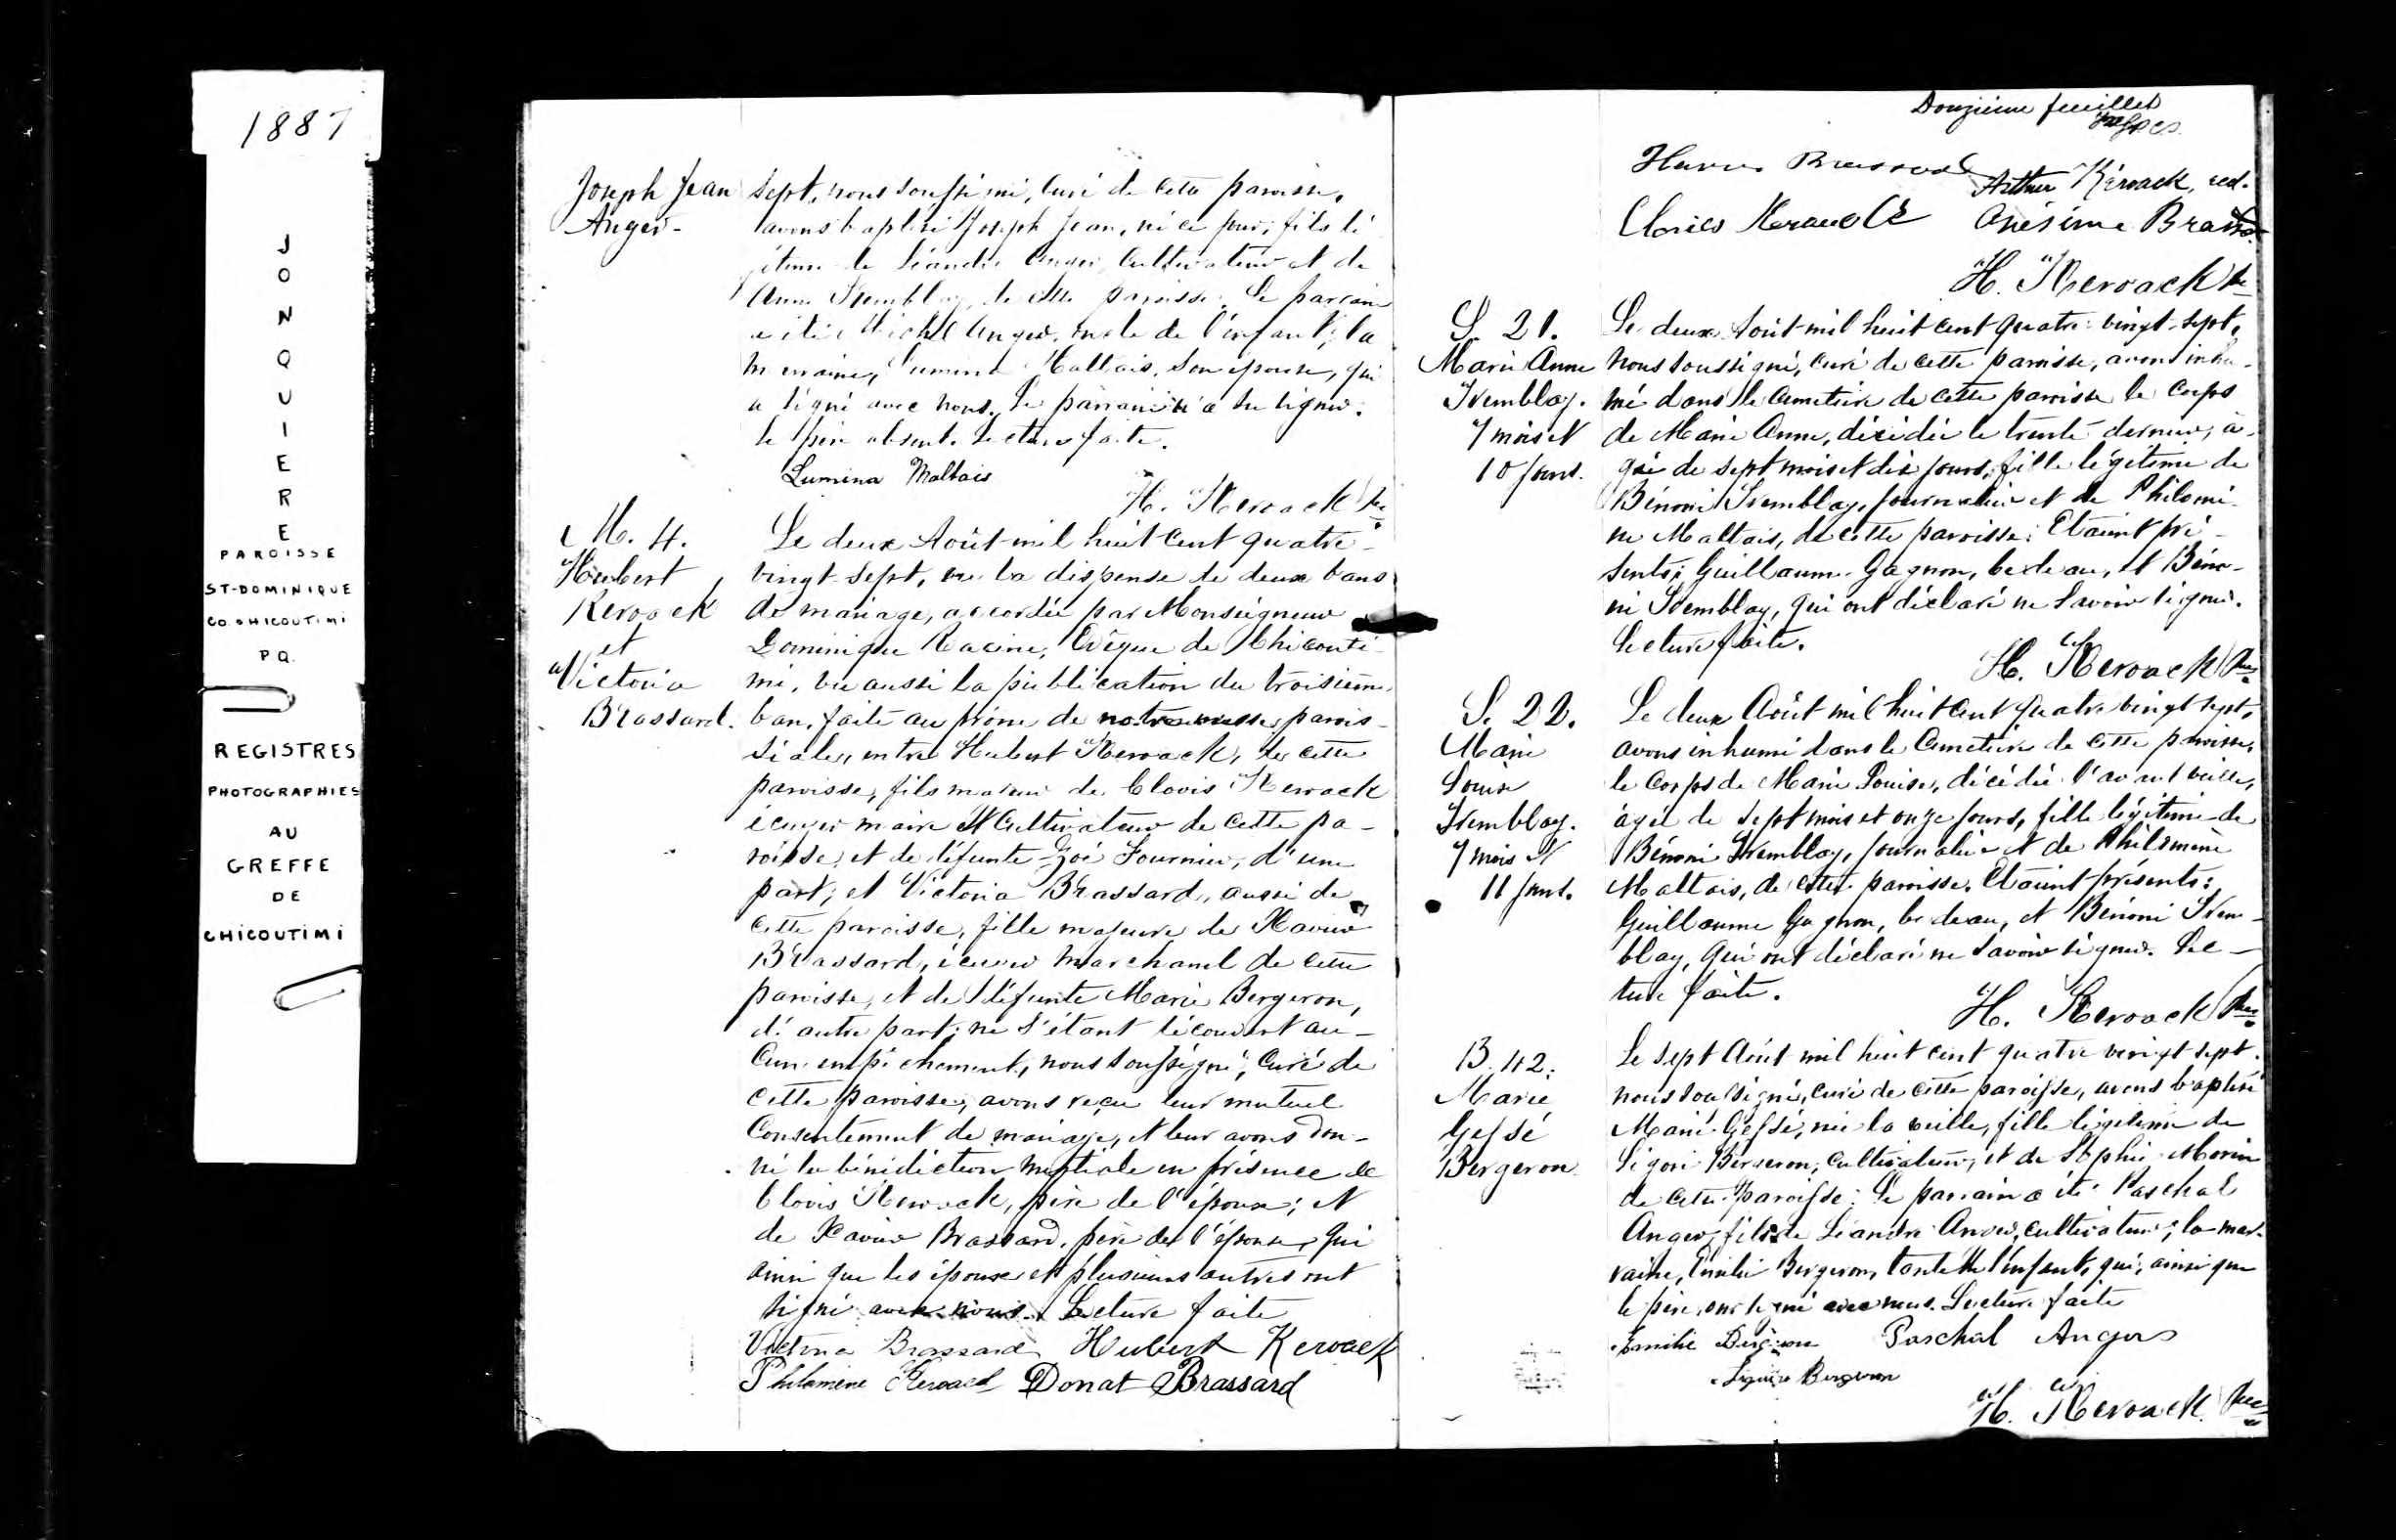 1887
JONQUIERE
PAROISSE
ST-DOMINIQUE
CO. CHICOUTIMI
P.Q.
REGISTRES
PHOTOGRAPHIES
AU
GREFFE
DE
CHICOUTIMI
Joseph Jean
Anger-
sept, nous soussigné, curé de cette paroisse,
avons baptisé Joseph Jean, né ce jour, fils lé
gitime de Léandre Anger cultivateur et de
Anne Tremblay, de cette paroisse. Le parrain
a été Michel Anger, oncle de l'enfant; la
marraine, Lumina Maltais, son épouse, qui
a signé avec nous. Le parrain n'a su signer.
Le père absent. Lecture faite.
Lumina Maltais
H. Keroack Ptre
M. 4.
Hubert
Keroack
et
Victoria
Brassard.
Le deux Août mil huit cent quatre-
vingt-sept, vu la dispense de deux bans
de mariage, accordée par Monseigneur
Dominique Racine, Evêque de Chicouti-
mi, vu aussi la publication du troisième
ban, faite au prône de notre messe parois-
siale, entre Hubert Keroack, de cette
paroisse, fils majeur de Clovis Keroack
écuyer maire et cultivateur de cette pa-
roisse, et de défunte Zoé Fournier, d'une
part; et Victoria Brassard, aussi de
cette paroisse, fille majeure de Xavier
Brassard, écuier marchand de cette
paroisse, et de défunte Marie Bergeron,
d'autre part; ne s'étant découvert au-
cun empêchement, nous soussigné, Curé de
cette paroisse, avons reçu leur mutuel
consentement de mariage, et leur avons don-
né la bénédiction nuptiale en présence de
Clovis Keroack, père de l'époux; et
de Xavier Brassard, père de l'épouse, qui
ainsi que les époux et plusieurs autres ont
signé avec nous. Lecture faite
Victoria Brassard Hubert Keroack
Philomène Keroack Donat Brassard
Douzième feuillet
Brassard Arthur Kéroack, ecd.
Onésime Brassard
H. Keroack Ptre
S. 21.
Marie Anne
Tremblay.
7 mois et
10 jours.
Le deux Août mil huit cent quatre-vingt-sept,
nous soussigné, curé de cette paroisse, avons inhu-
mé dans le cimetière de cette paroisse le corps
de Marie Anne, décédée le trente dernier, â-
gée de sept mois et dix jours, fille légitime de
Bénoni Tremblay, journalier et de Philomè-
ne Maltais, de cette paroisse. Etaient pré-
sents: Guillaume Gagnon, bedeau, et Béno-
ni Tremblay, qui ont déclaré ne savoir signer.
Lecture faite.
H. Keroack Ptre
S. 22.
Marie
Louise
Tremblay.
7 mois et
11 jours.
Le deux Août mil huit cent quatre vingt sept,
avons inhumé dans le cimetière de cette paroisse,
le corps de Marie Louise, décédée l'avant veille,
âgée de sept mois et onze jours, fille légitime de
Bénoni Tremblay, journalier et de Philomène
Maltais, de cette paroisse. Etaient présents:
Guillaume Gagnon, bedeau, et Bénoni Trem-
blay, qui ont déclaré ne savoir signer. Lec-
ture faite.
H. Keroack Ptre
B. 42.
Marie
Bergeron
Le sept Août mil huit cent quatre vingt sept.
nous soussigné, curé de cette paroisse, avons baptisé
Marie, née la veille, fille légitime de
Ligori Bergeron, cultivateur, et de Sophie Morin
de cette paroisse. Le parrain a été Paschal
Anger, fils de Léandre Anger, cultivateur; la mar-
raine, Emilie Bergeron, tante de l'enfant, qui, ainsi que
le père, ont signé avec nous. Lecture faite
Emilie Bergeron Paschal Angers
Bergeron
H. Keroack Ptre